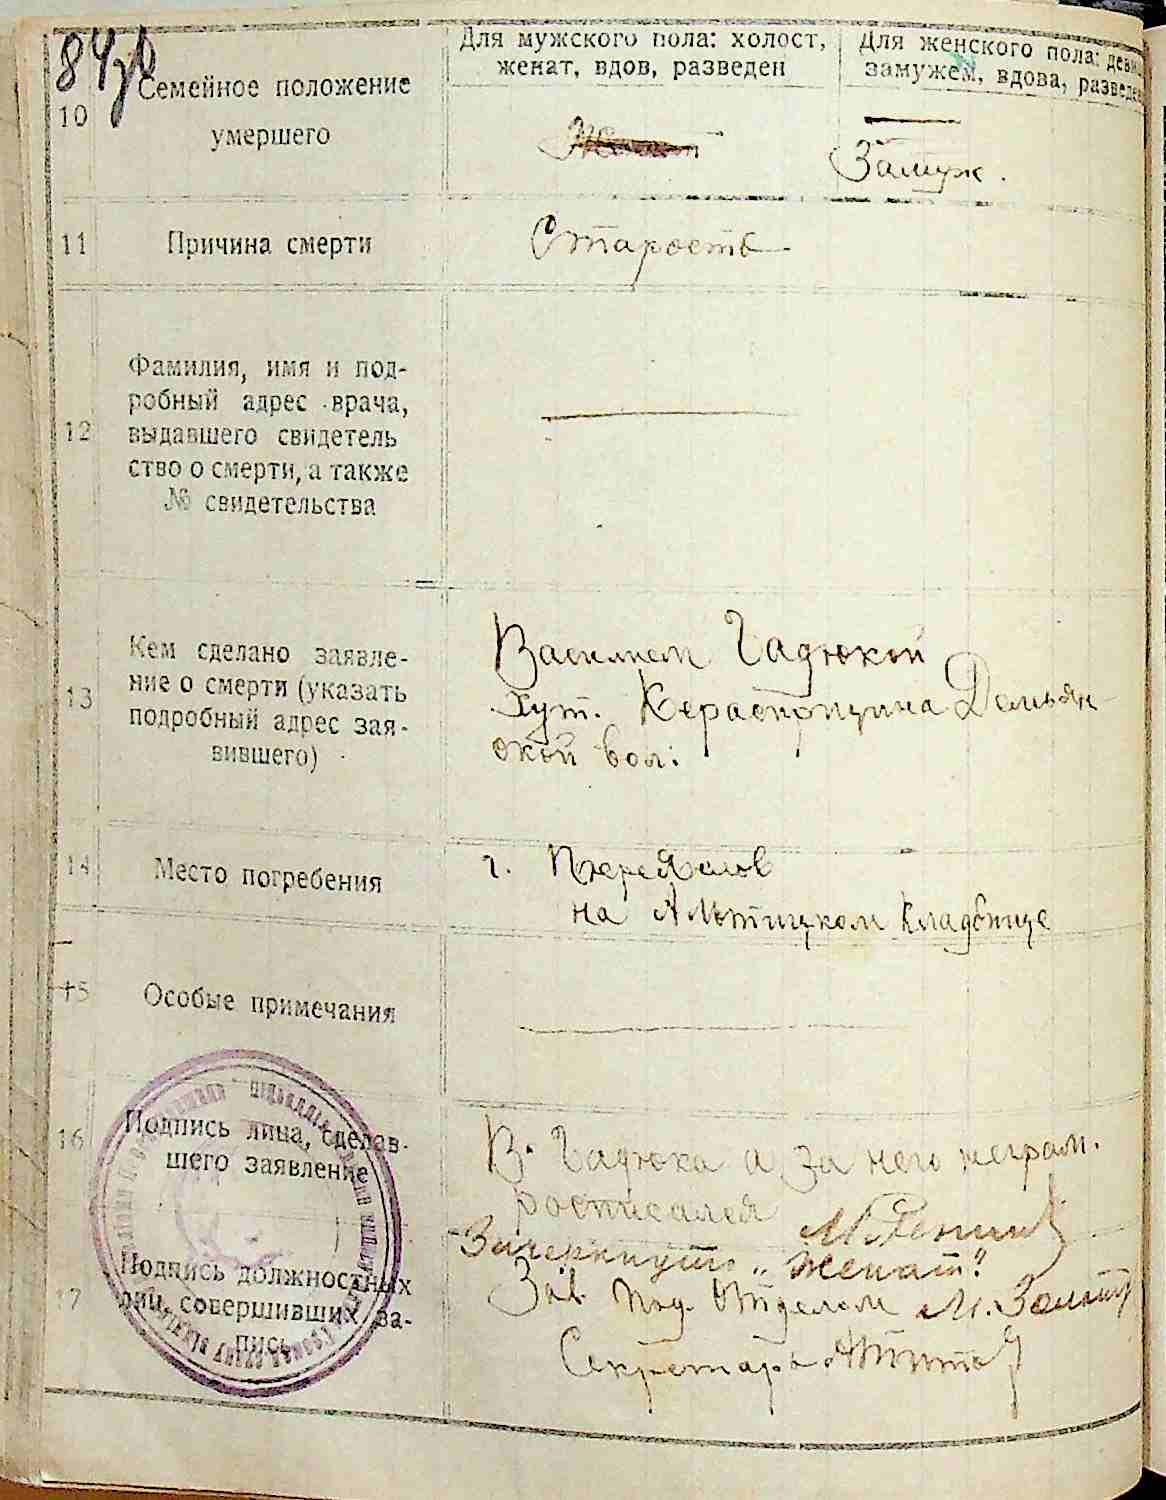 84об
Для мужского пола: холост,
женат, вдов, разведен
Для женского пола: девиц
замужем, вдова, разведен
10
Семейное положение
умершего
Женат
Замуж.
11
Причина смерти
Старость
12
Фамилия, имя и под-
робный адрес врача,
выдавшего свидетель
ство о смерти, а также
№ свидетельства
13
Кем сделано заявле-
ние о смерти (указать
подробный адрес зая-
вившего)
Василием Гадюкой
хут. Демьян-
ской вол:
14
Место погребения
г. Переяслов
на Альтицком кладбище
15
Особые примечания
16
Подпись лица, сделав-
шего заявление
В. Гадюка а за него неграм.
росписался
Зачеркнуто „женат"
17
Подпись должностных
лиц, совершивших за-
пись
Зав. Под. Отделом М.
Секретарь